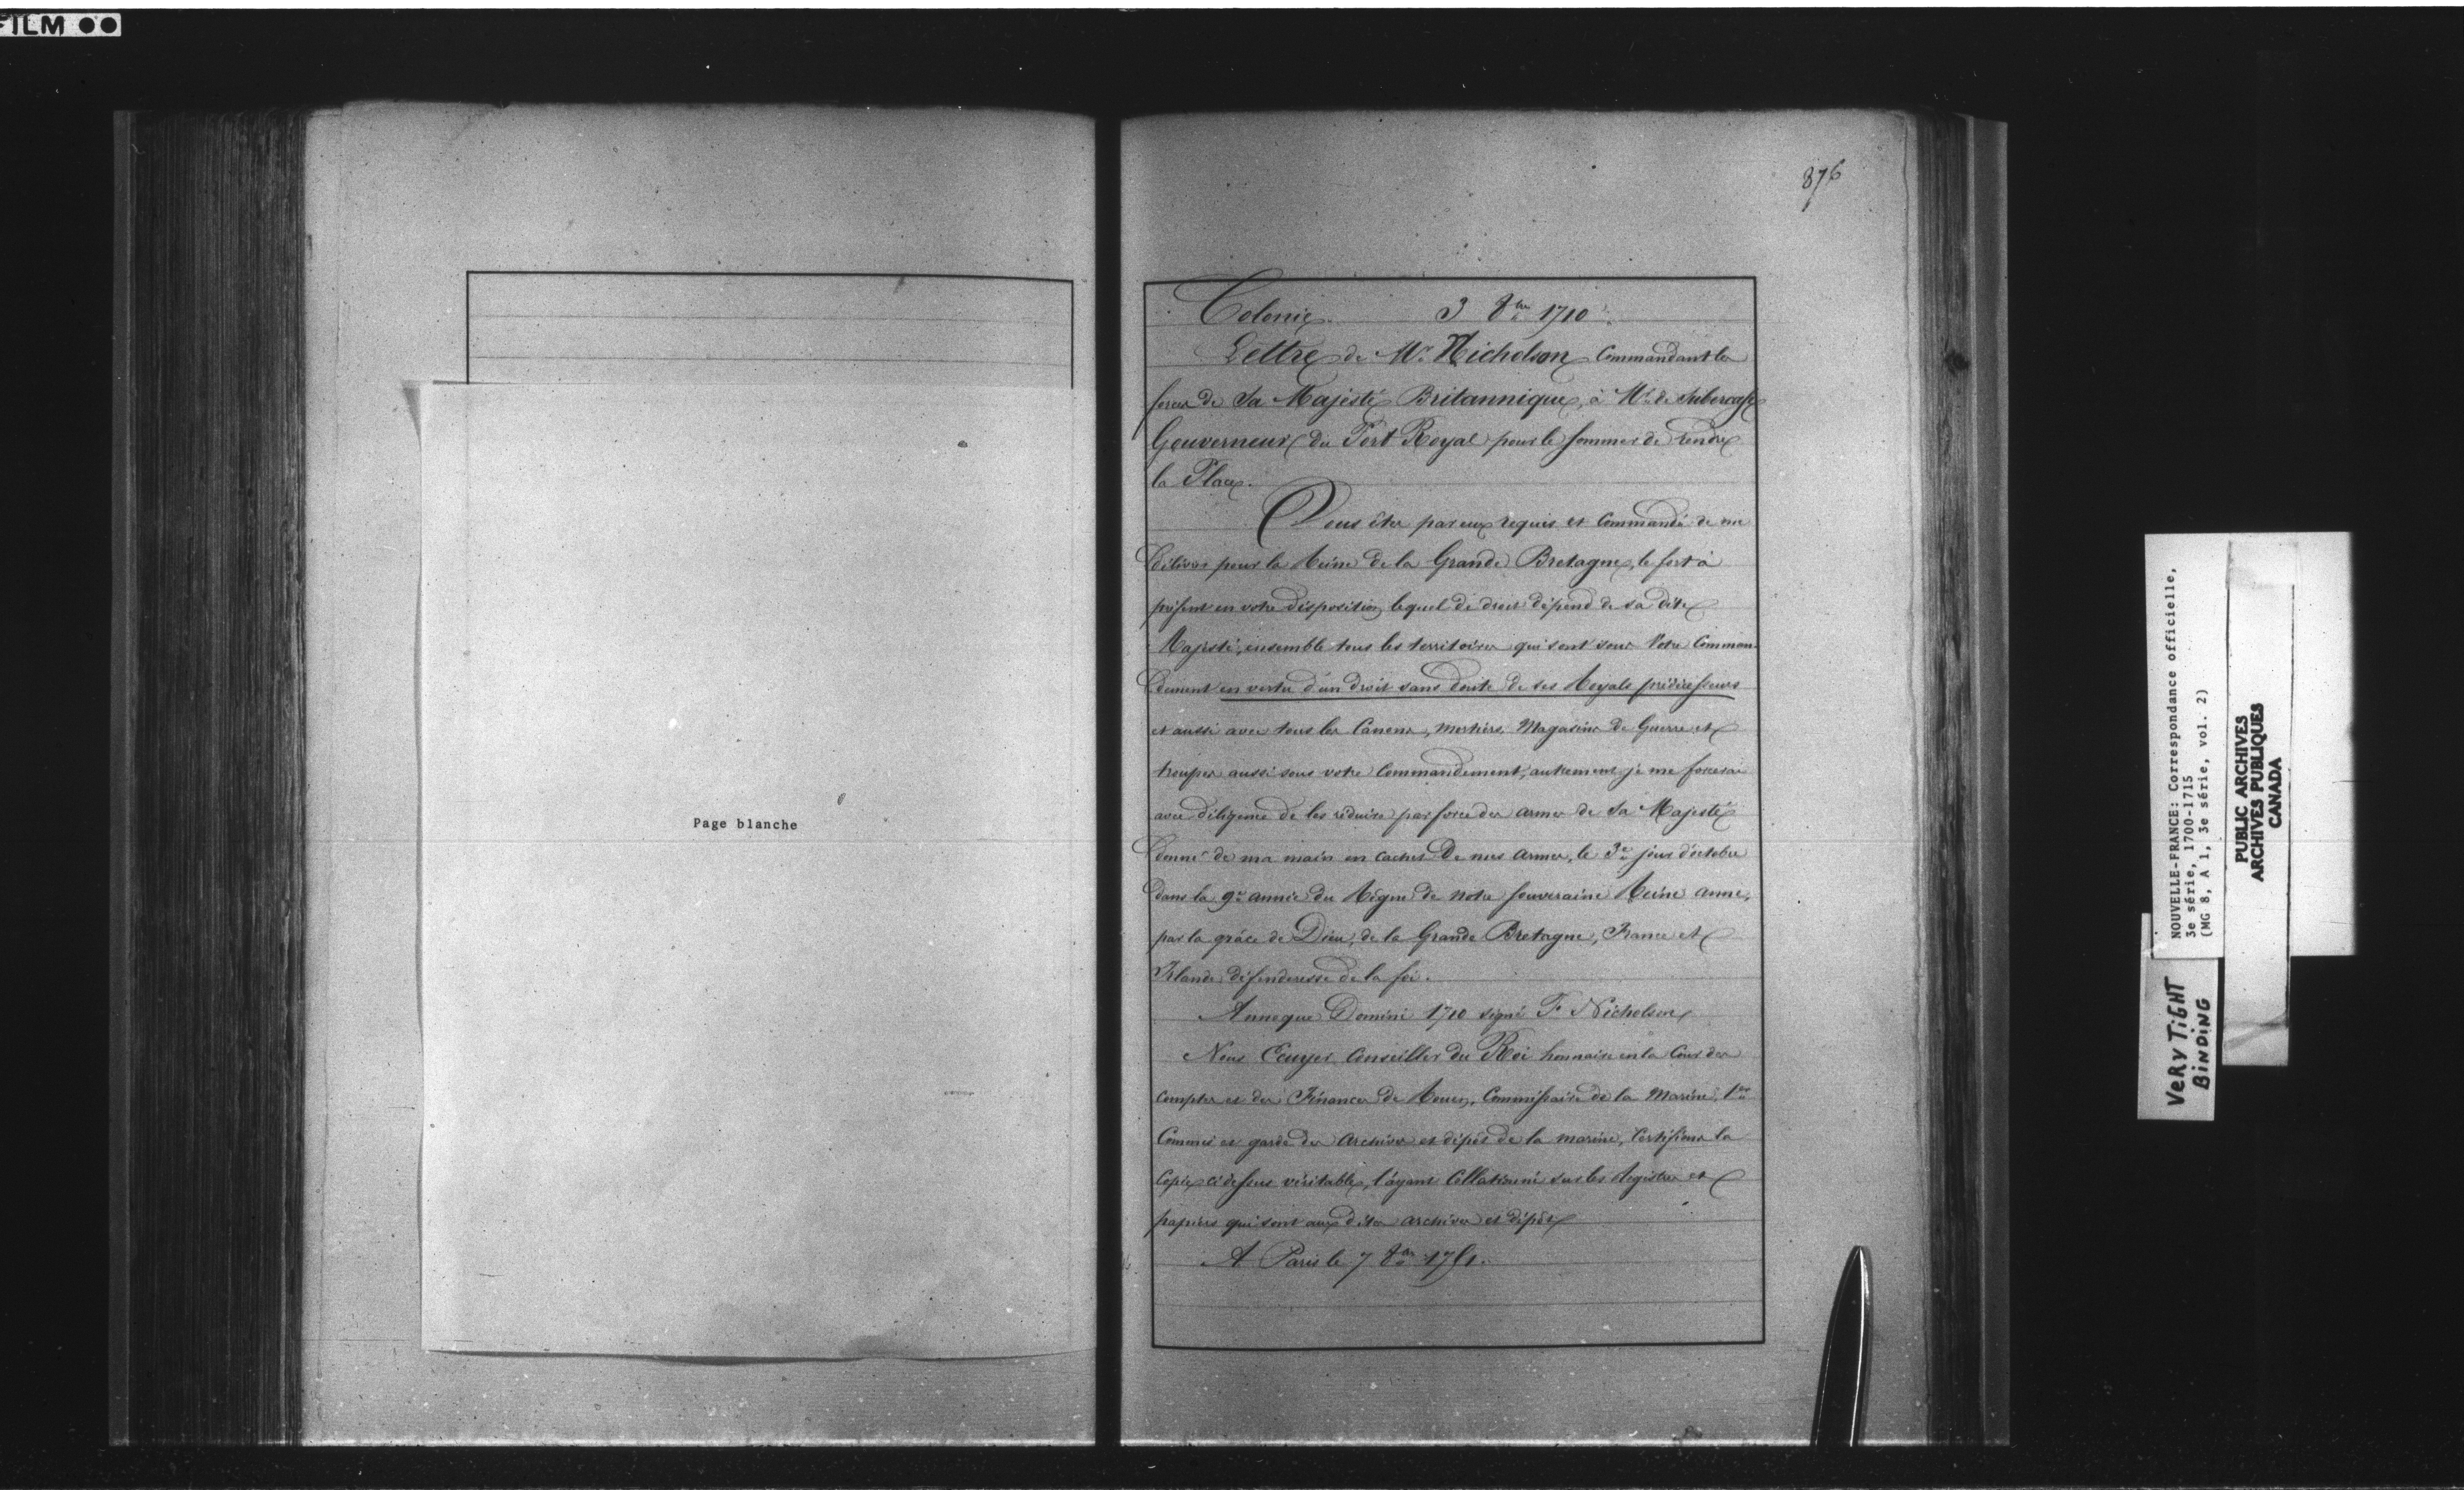 FILM
Page blanche
876
Colonies 3 8bre 1710
Lettre de Mr. Nicholson Commandant les
forces de Sa Majesté Britannique, à Mr. de Subercase
Gouverneur du Port Royal pour le sommer de rendre
la Place.
Vous êtes par eux requis et Commandé de me
délivrer pour la Reine de la Grande Bretagne, le fort à
présent en votre disposition lequel de droit dépend de sa dite
Majesté, ensemble tous les territoires qui sont sous Votre Comman-
dement en vertu d'un droit sans doute de ses Royals prédécesseurs
et aussi avec tous les Canons, mortiers, Magasins de Guerre et
troupes aussi sous votre Commandement, autrement je me forcerai
avec diligence de les réduire par force des armes de Sa Majesté
donné de ma main en cachet de mes armes, le 3e jour d'octobre
dans la 9e année du Règne de notre souveraine Reine anne,
par la grâce de Dieu, de la Grande Bretagne, France et
Irlande défenderesse de la foi.
Annoque Domini 1710 signé F. Nicholson
Nous Ecuyer Conseiller du Roi honnaire en la Cour des
Comptes et des Finances de Rouen, Commissaire de la Marine, 1er
Commis et garde des archives et dépôt de la marine, Certifions la
Copie ci dessus véritable, l'ayant Collationné sur les Registres et
papiers qui sont aux dites archives et dépôt
A Paris le 7 8bre 1751.
NOUVELLE-FRANCE: Correspondance officielle,
3e série, 1700-1715
(MG 8, A 1, 3e série, vol. 2)
PUBLIC ARCHIVES
ARCHIVES PUBLIQUES
CANADA
VERY TIGHT
BINDING